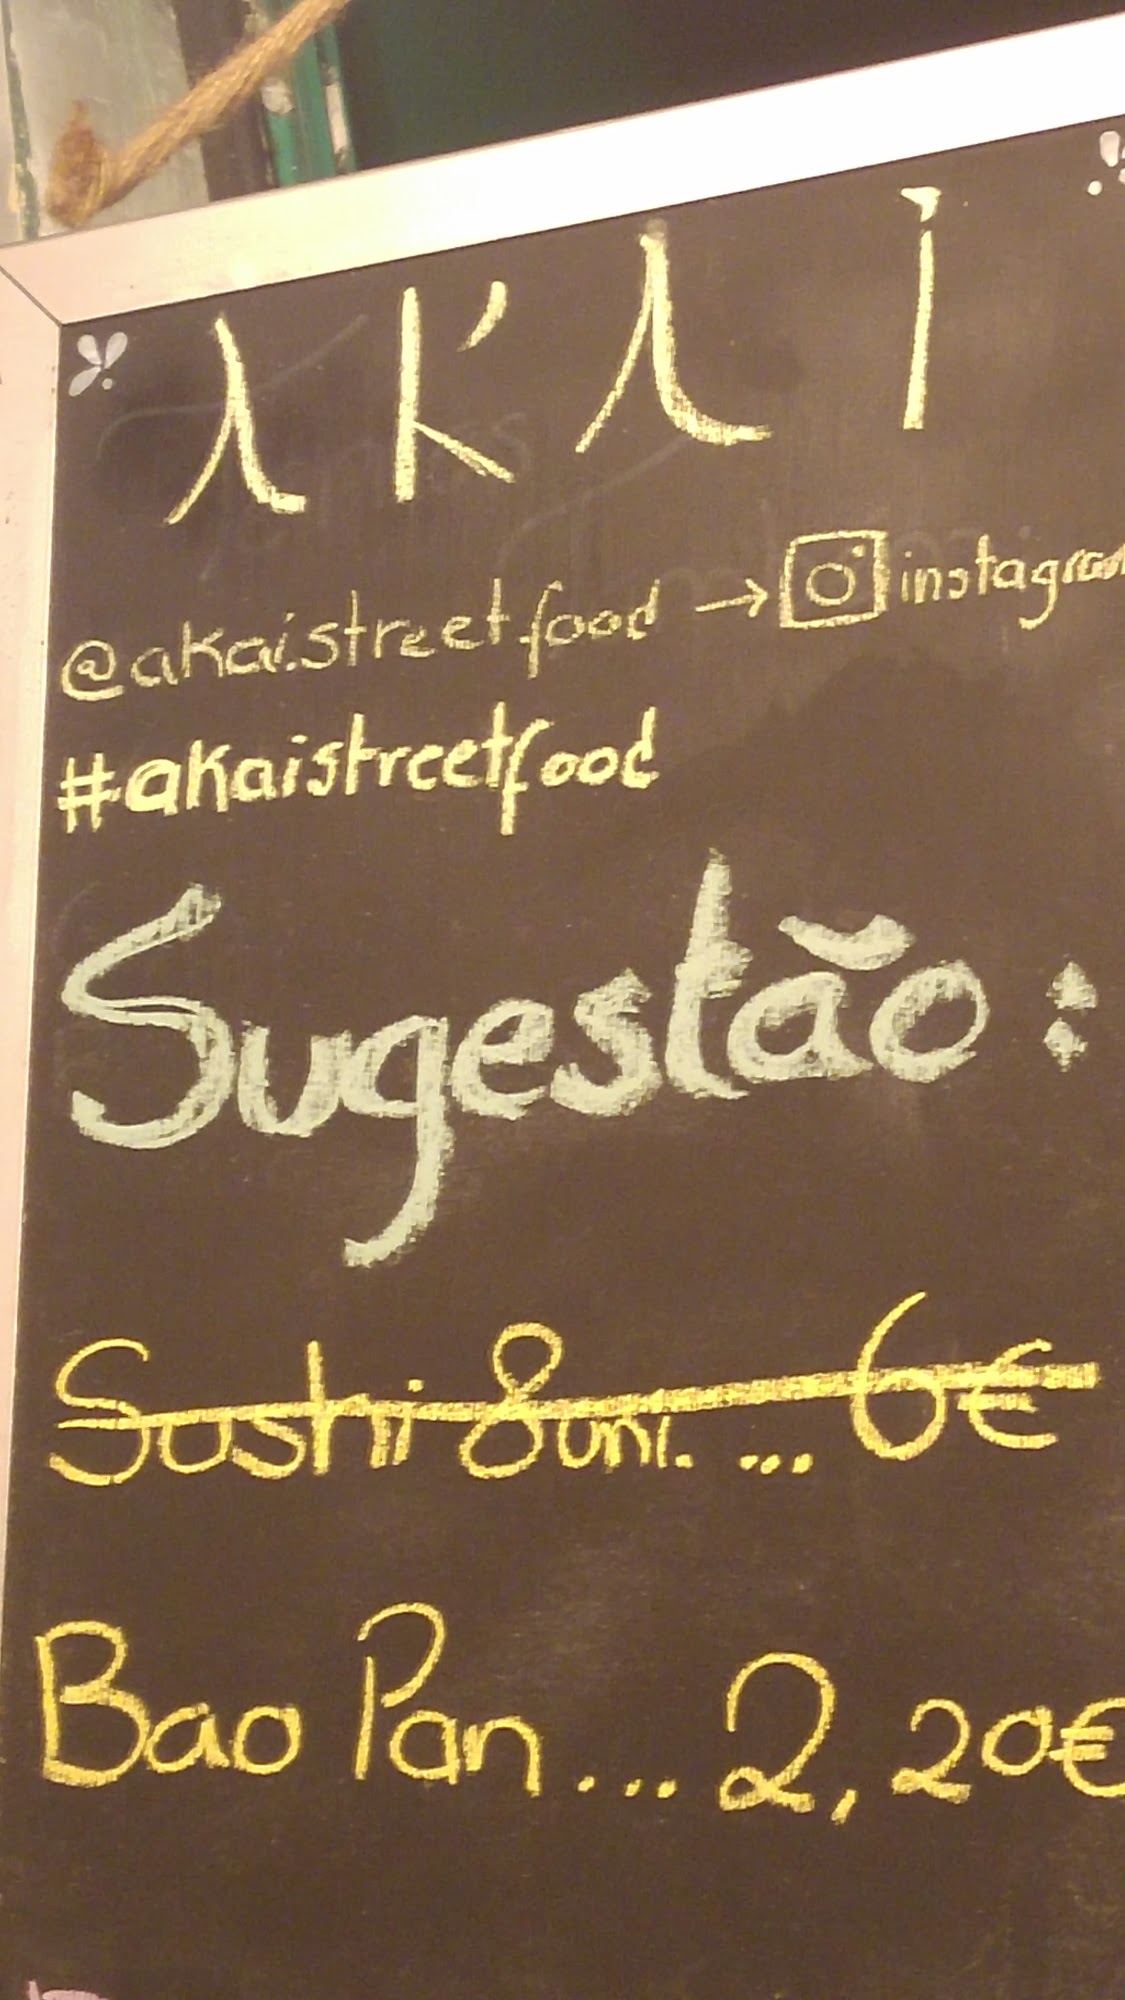 AKAI
@akai.streetfood → instagram
#akaistreetfood
Sugestão:
Sushi 8 uni. ... 6€
Bao Pan ... 2,20€